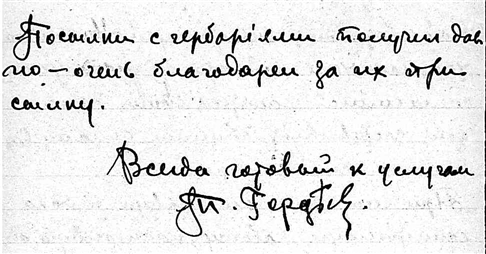 Посылки с гербаріями получил дав
но — очень благодарен за их при
сылку.
Всегда готовый к услугам